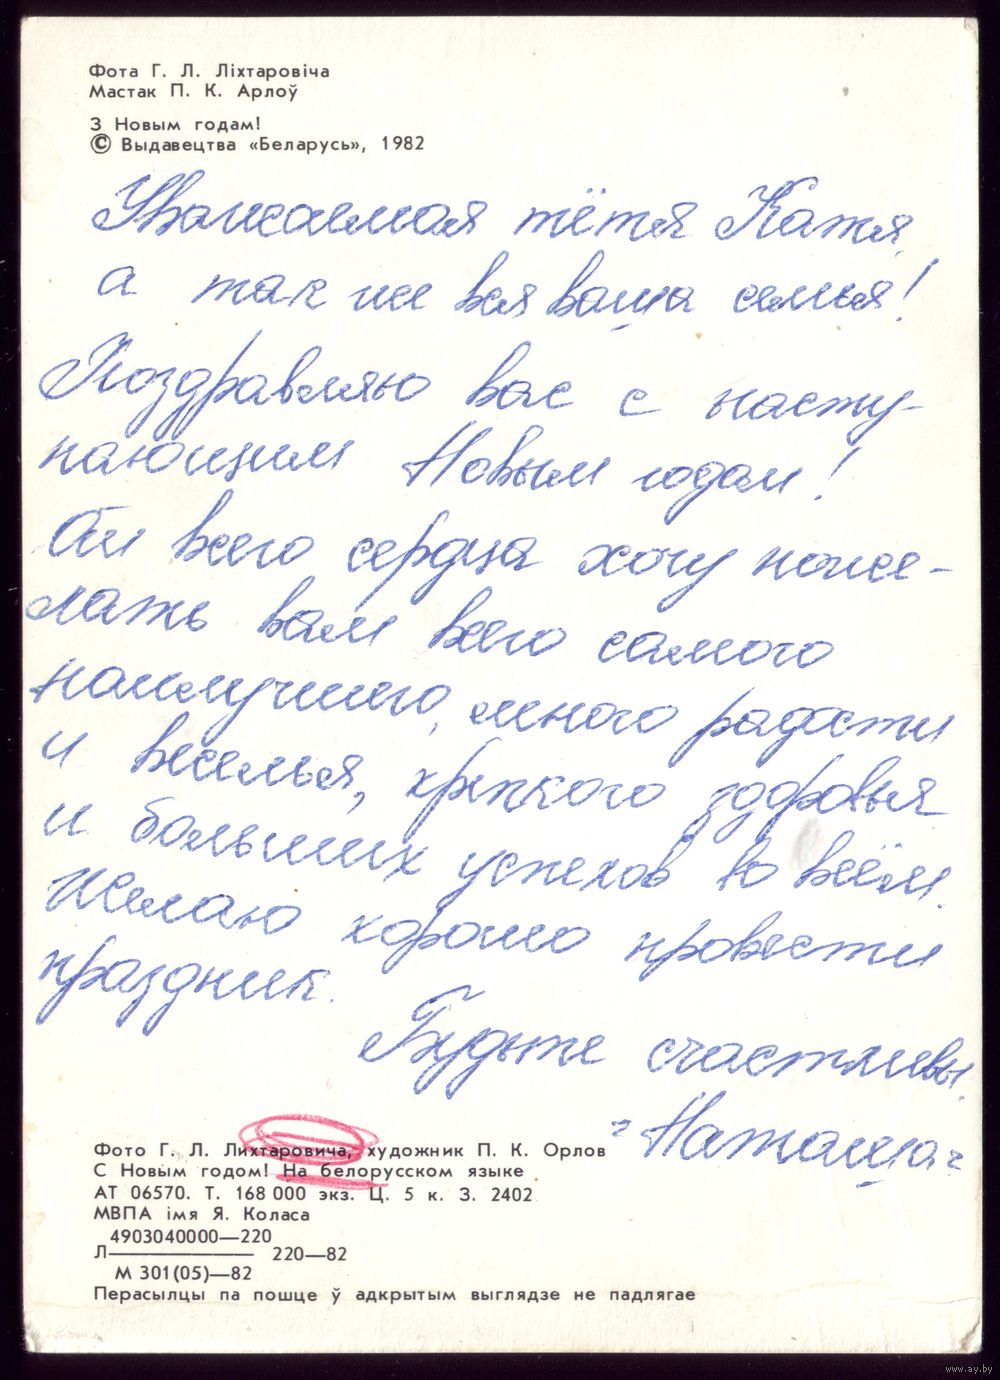 Фота Г. Л. Ліхтаровіча
Мастак П. К. Арлоў
З Новым годам!
© Выдавецтва «Беларусь», 1982
Уважаемая тётя Катя,
а так же вся ваша семья!
Поздравляю вас с насту-
пающим Новым годом!
От всего сердца хочу поже-
лать вам всего самого
наилучшего, много радости
и веселья, крепкого здоровья
и больших успехов во всём.
Желаю хорошо провести
праздник.
Будьте счастливы.
Наташа
Фото Г. Л. Лихтаровича, художник П. К. Орлов
С Новым годом! На белорусском языке
АТ 06570. Т. 168 000 экз. Ц. 5 к. З. 2402
МВПА імя Я. Коласа
4903040000—220
Л———————— 220—82
М 301(05)—82
Перасылцы па пошце ў адкрытым выглядзе не падлягае
www.ay.by